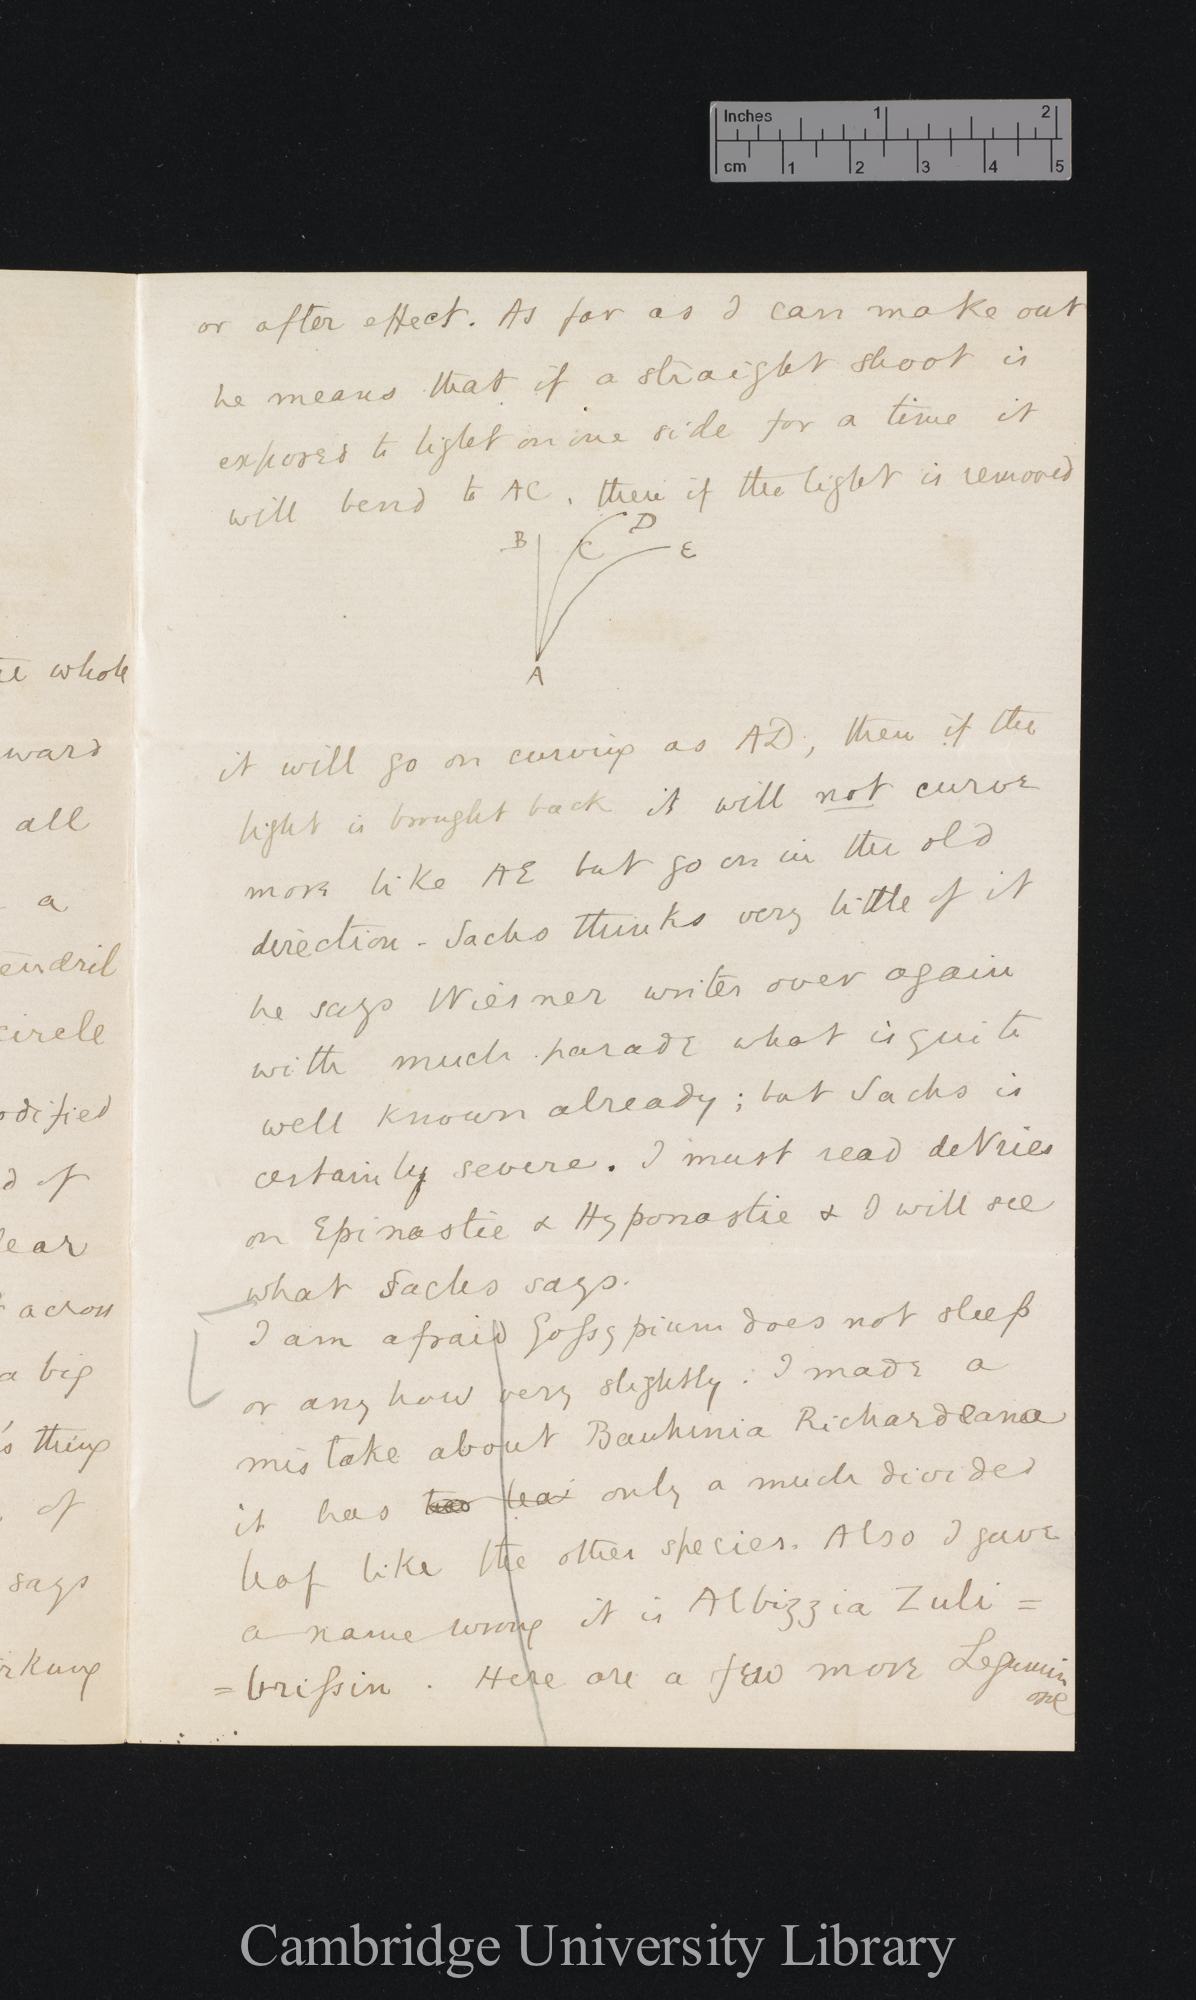 Inches 1 2
cm 1 2 3 4 5
or after effect. As far as I can make out
he means that if a straight shoot is
exposed to light on one side for a time it
will bend to AC, then if the light is removed
B C D E
A
it will go on curving as AD, then if the
light is brought back it will not curve
more like AE but go on in the old
direction - Sachs thinks very little of it
he says Wiesner writes over again
with much parade what is quite
well known already; but Sachs is
certainly severe. I must read deVries
on Epinastie & Hyponastie & I will see
what Sachs says.
I am afraid Gossypium does not sleep
or any how very slightly. I made a
mistake about Bauhinia Richardeana
it has only a much divided
leaf like the other species. Also I gave
a name wrong it is Albizzia Zuli=
=brissin. Here are a few more Legumin
osae
whole
ward
all
a
circle
of
across
a big
's thing
of
says
Cambridge University Library